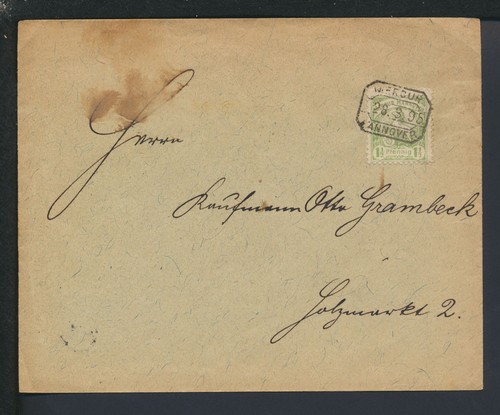 MERCUR
29.3.95
HANNOVER
1½ 1½
Herrn
Kaufmann Otto Grambeck
Holzmarkt 2.